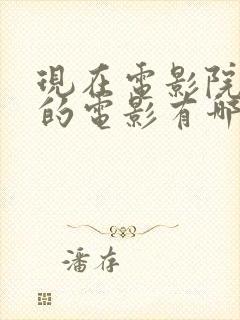 現在電影院
的電影有哪
潘存